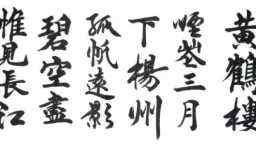 黃鶴樓
煙花三月
下楊州
孤帆遠影
碧空盡
惟見長江